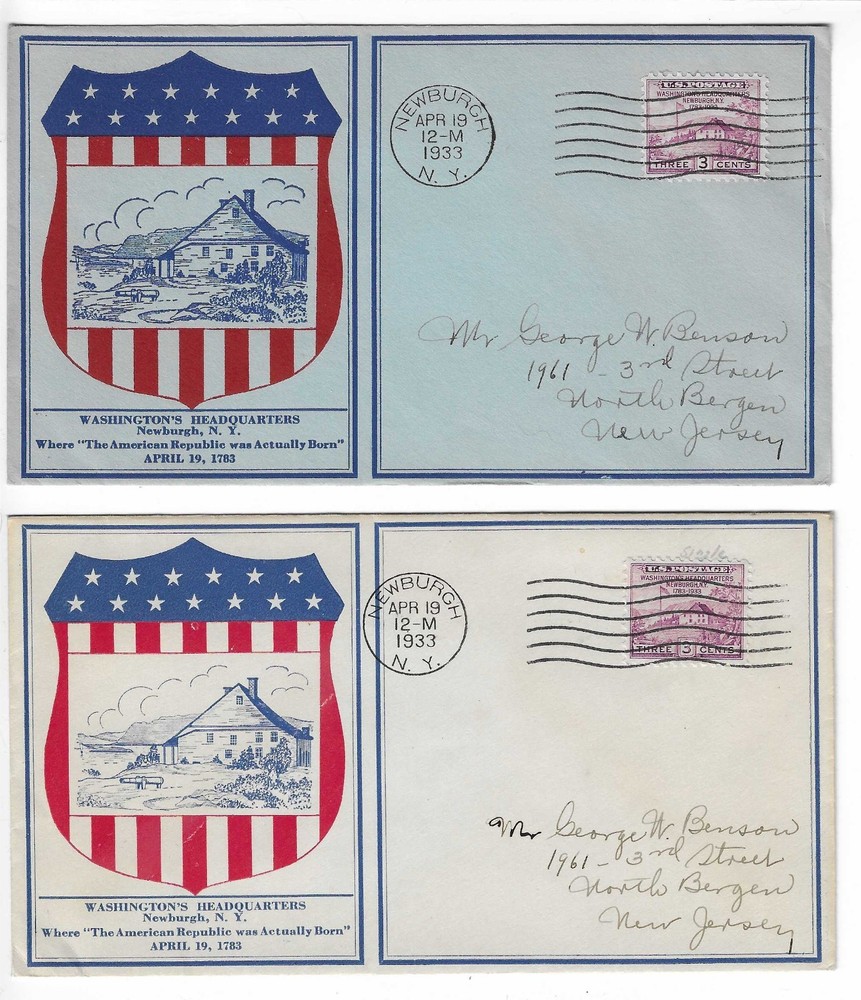 NEWBURGH
APR 19
12-M
1933
N. Y.
U.S. POSTAGE
WASHINGTON'S HEADQUARTERS
NEWBURGH, N.Y.
1783-1933
THREE 3 CENTS
Mr George W. Benson
1961 - 3rd Street
North Bergen
New Jersey
WASHINGTON'S HEADQUARTERS
Newburgh, N. Y.
Where "The American Republic was Actually Born"
APRIL 19, 1783
NEWBURGH
APR 19
12-M
1933
N. Y.
U.S. POSTAGE
WASHINGTON'S HEADQUARTERS
NEWBURGH, N.Y.
1783-1933
THREE 3 CENTS
Mr George W. Benson
1961 - 3rd Street
North Bergen
New Jersey
WASHINGTON'S HEADQUARTERS
Newburgh, N. Y.
Where "The American Republic was Actually Born"
APRIL 19, 1783